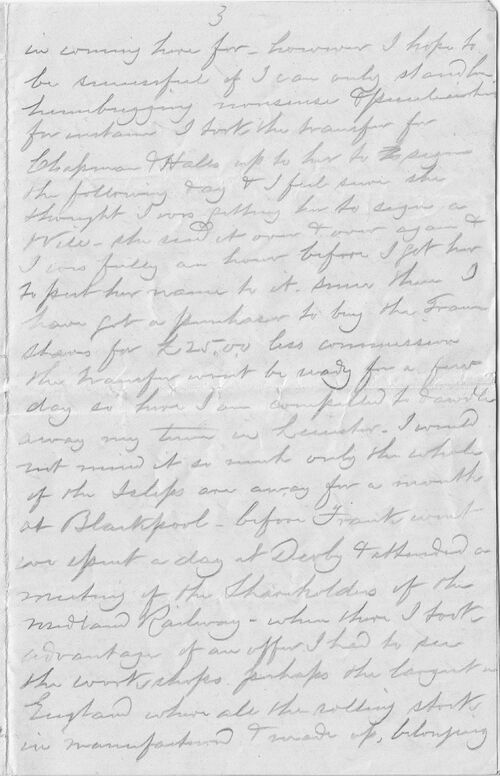 3
in coming here for - however I hope to
be successful if I can only stand her
humbugging nonsense &
for instance I took the transfer for
Chapman & Halls up to her to sign
the following day & I feel sure she
thought I was getting her to sign a
Will - she read it over & over again &
I was fully an hour before I got her
to put her name to it. since then I
have got a purchaser to buy the Tram
shares for £25.0.0 less commission
the transfer wont be ready for a few
day so here I am compelled to dawdle
away my time in Leicester - I would
not mind it so much only the whole
of the Islips are away for a month
at Blackpool - before Frank went
we spent a day at Derby & attended a
meeting of the Shareholders of the
Midland Railway - when there I took
advantage of an offer I had to see
the work shops perhaps the largest in
England where all the rolling stock
is manufactured & made up, belonging